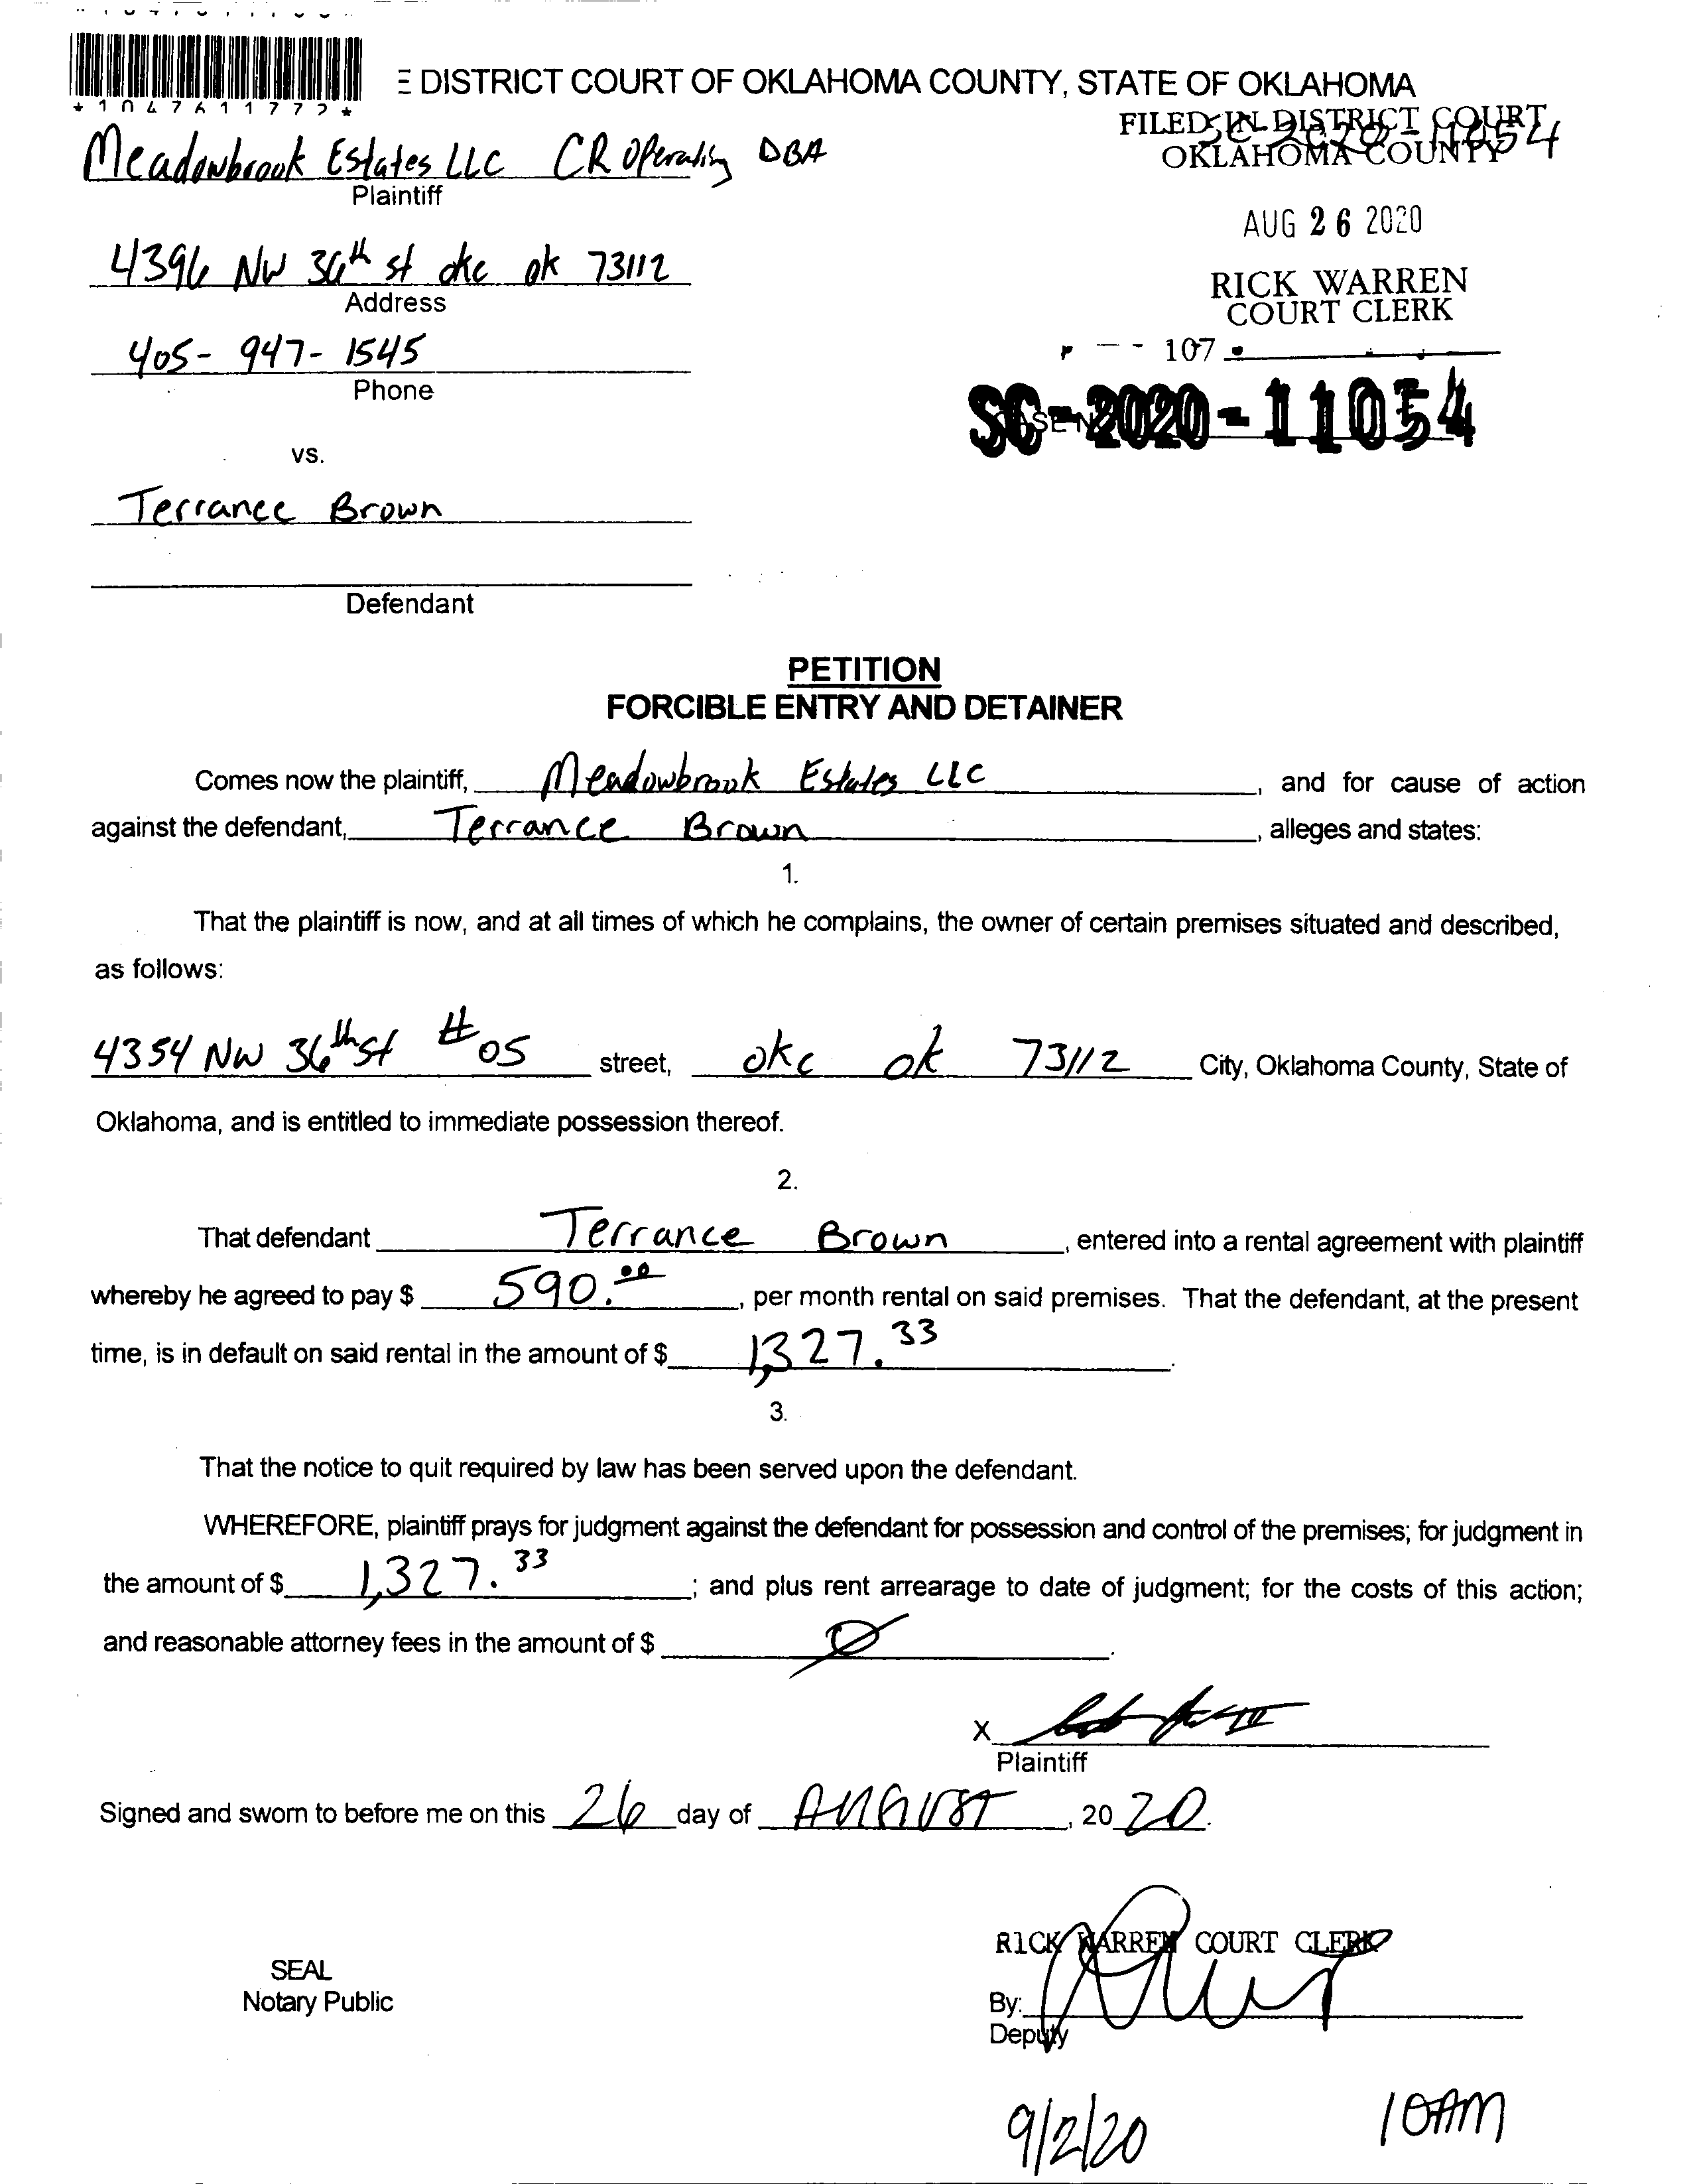 *1047611772*
E DISTRICT COURT OF OKLAHOMA COUNTY, STATE OF OKLAHOMA
FILED IN DISTRICT COURT
OKLAHOMA COUNTY
SC-2020-11054
Meadowbrook Estates LLC CR Operating DBA
Plaintiff
AUG 26 2020
4396 NW 36th st okc ok 73112
Address
RICK WARREN
COURT CLERK
405-947-1545
Phone
107
SC-2020-11054
vs.
Terrance Brown
Defendant
PETITION
FORCIBLE ENTRY AND DETAINER
Comes now the plaintiff, Meadowbrook Estates LLC, and for cause of action
against the defendant, Terrance Brown, alleges and states:
1.
That the plaintiff is now, and at all times of which he complains, the owner of certain premises situated and described,
as follows:
4354 NW 36th St #05 street, okc ok 73112 City, Oklahoma County, State of
Oklahoma, and is entitled to immediate possession thereof.
2.
That defendant Terrance Brown, entered into a rental agreement with plaintiff
whereby he agreed to pay $ 590.00, per month rental on said premises. That the defendant, at the present
time, is in default on said rental in the amount of $ 1,327.33.
3.
That the notice to quit required by law has been served upon the defendant.
WHEREFORE, plaintiff prays for judgment against the defendant for possession and control of the premises; for judgment in
the amount of $ 1,327.33; and plus rent arrearage to date of judgment; for the costs of this action;
and reasonable attorney fees in the amount of $ Ø.
X
Plaintiff
Signed and sworn to before me on this 26 day of AUGUST, 2020.
RICK WARREN COURT CLERK
SEAL
Notary Public
By:
Deputy
9/2/20 10AM